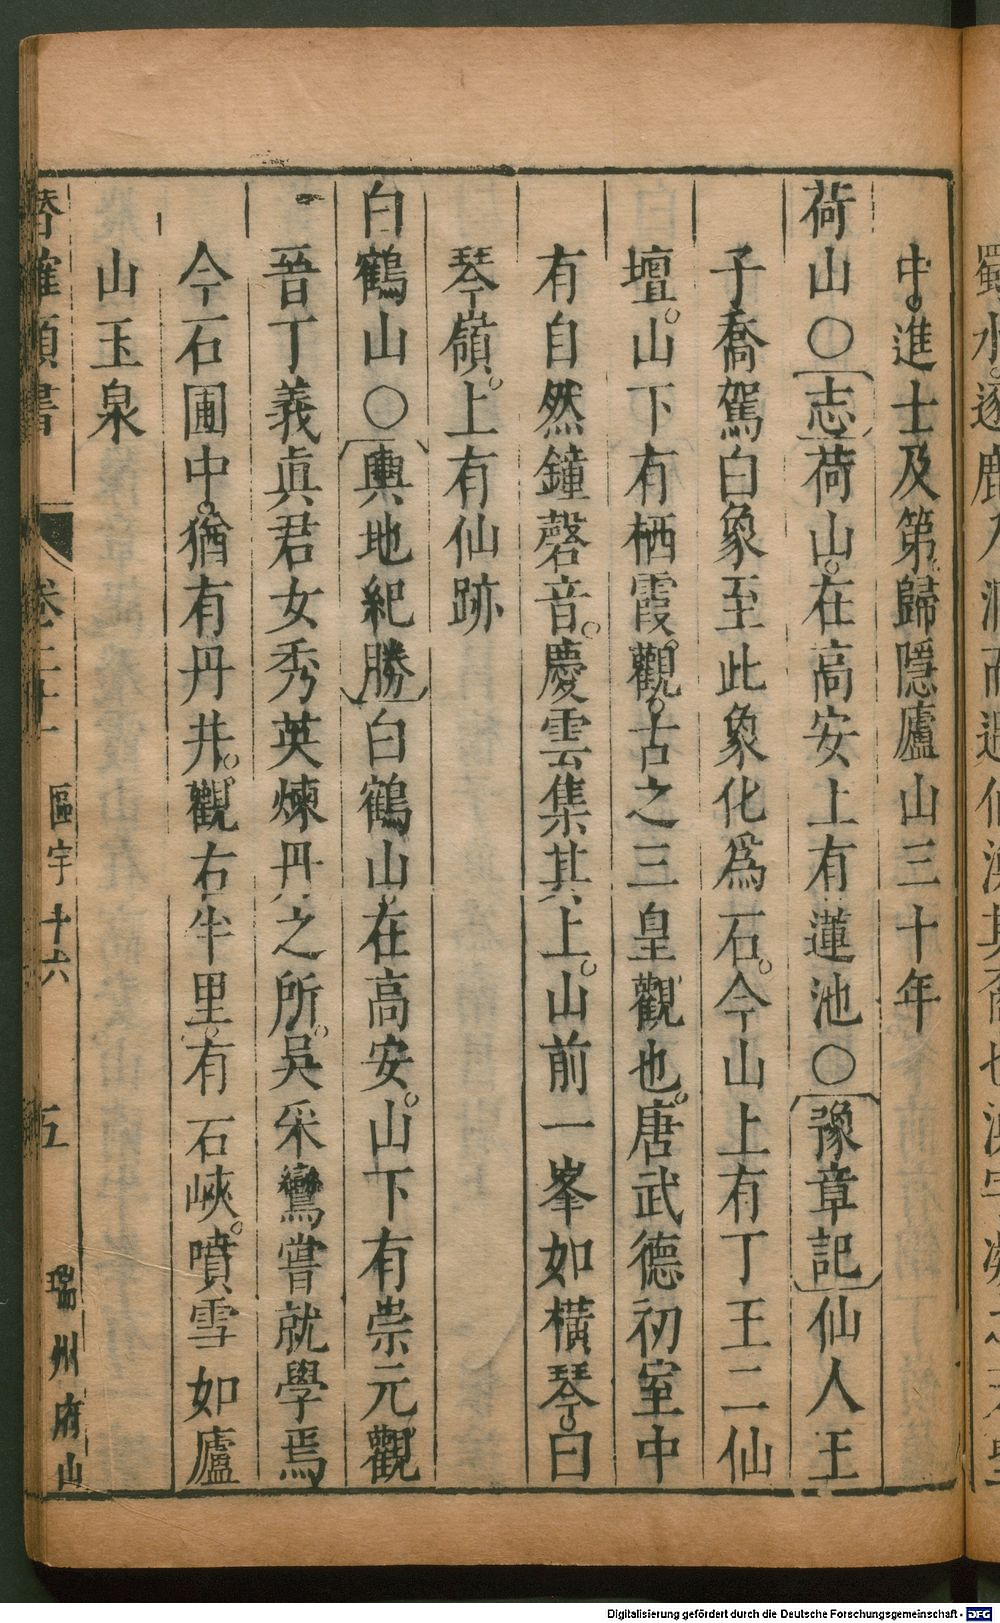 中。進士及第。歸隱廬山三十年
荷山○〔志〕荷山。在高安上有蓮池○〔豫章記〕仙人王
子喬駕白象至此象化爲石。今山上有丁王二仙
壇。山下有栖霞觀。古之三皇觀也。唐武德初室中
有自然鐘磬音。慶雲集其上。山前一峯如橫琴。曰
琴嶺。上有仙跡
白鶴山○〔輿地紀勝〕白鶴山在高安。山下有崇元觀
晉丁義眞君女秀英煉丹之所。吳采鸞嘗就學焉
今石圃中。猶有丹井。觀右半里。有石峽。噴雪如廬
山玉泉
區宇十六
五
瑞州府山
Digitalisierung gefördert durch die Deutsche Forschungsgemeinschaft - DFG